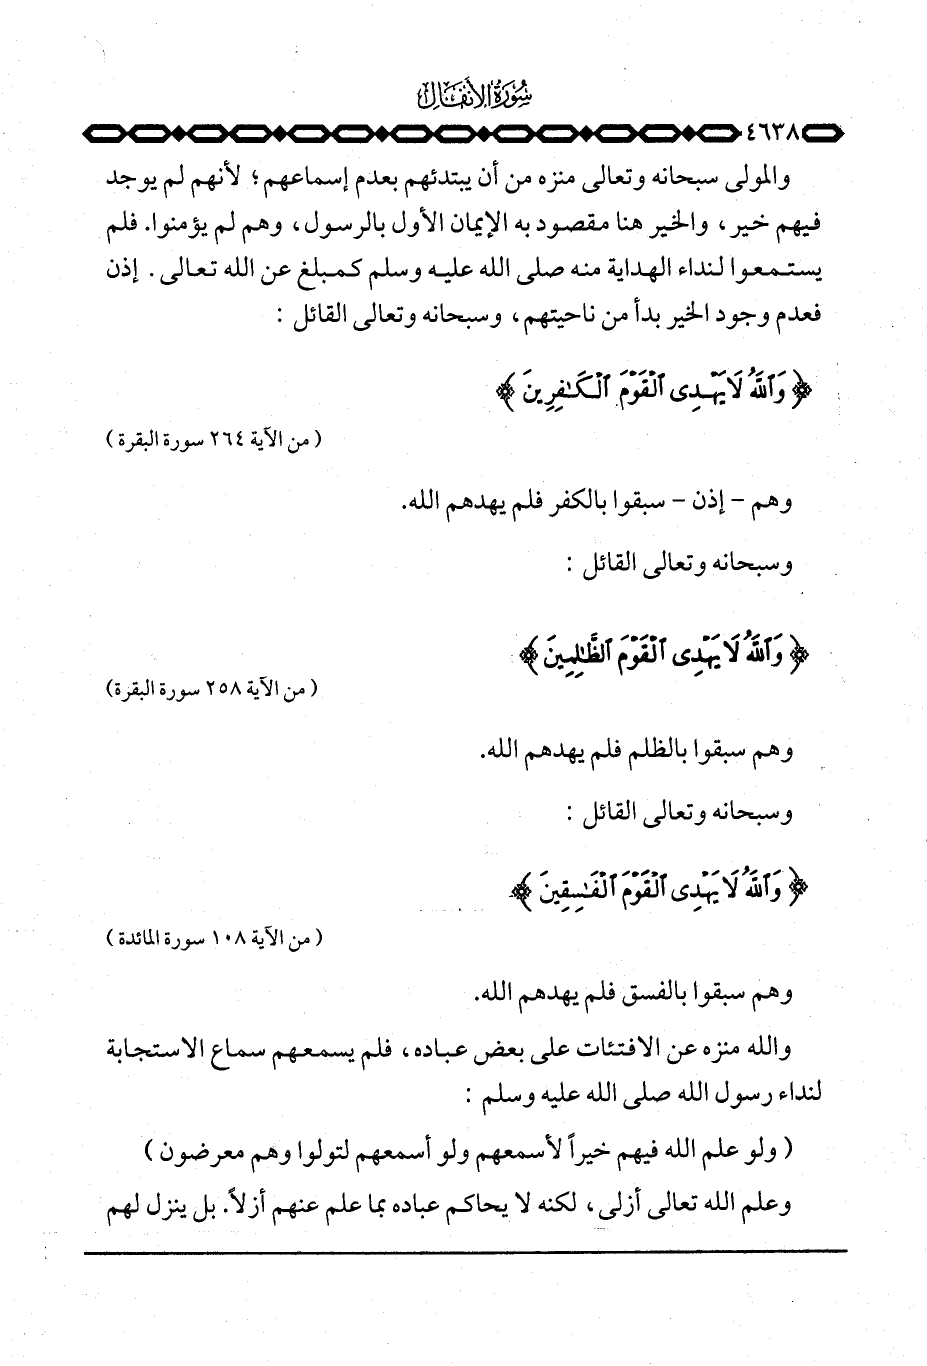 سورة الأنفال
٤٦٣٨
والمولى سبحانه وتعالى منزه من أن يبتدئهم بعدم إسماعهم؛ لأنهم لم يوجد
فيهم خير، والخير هنا مقصود به الإيمان الأول بالرسول، وهم لم يؤمنوا. فلم
يستمعوا لنداء الهداية منه صلى الله عليه وسلم كمبلغ عن الله تعالى. إذن
فعدم وجود الخير بدأ من ناحيتهم، وسبحانه وتعالى القائل :
﴿ وَٱللَّهُ لَا يَهْدِى ٱلْقَوْمَ ٱلْكَـٰفِرِينَ ﴾
( من الآية ٢٦٤ سورة البقرة )
وهم – إذن – سبقوا بالكفر فلم يهدهم الله.
وسبحانه وتعالى القائل :
﴿ وَٱللَّهُ لَا يَهْدِى ٱلْقَوْمَ ٱلظَّـٰلِمِينَ ﴾
( من الآية ٢٥٨ سورة البقرة )
وهم سبقوا بالظلم فلم يهدهم الله.
وسبحانه وتعالى القائل :
﴿ وَٱللَّهُ لَا يَهْدِى ٱلْقَوْمَ ٱلْفَـٰسِقِينَ ﴾
( من الآية ١٠٨ سورة المائدة )
وهم سبقوا بالفسق فلم يهدهم الله.
والله منزه عن الافتئات على بعض عباده، فلم يسمعهم سماع الاستجابة
لنداء رسول الله صلى الله عليه وسلم :
( ولو علم الله فيهم خيراً لأسمعهم ولو أسمعهم لتولوا وهم معرضون )
وعلم الله تعالى أزلى، لكنه لا يحاكم عباده بما علم عنهم أزلاً. بل ينزل لهم